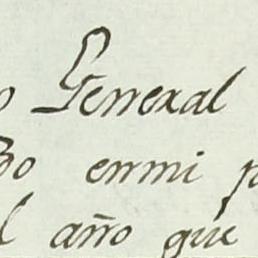 o General
enmi p
l año que